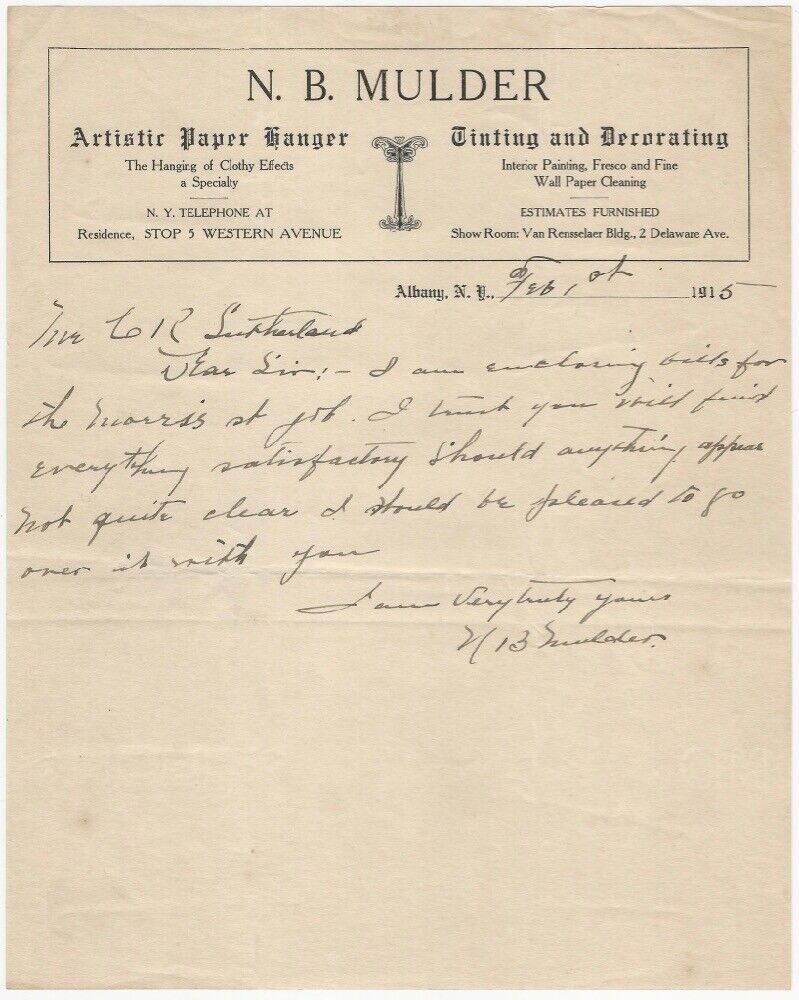 N. B. MULDER
Artistic Paper Hanger
The Hanging of Clothy Effects
a Specialty
N. Y. TELEPHONE AT
Residence, STOP 5 WESTERN AVENUE
Tinting and Decorating
Interior Painting, Fresco and Fine
Wall Paper Cleaning
ESTIMATES FURNISHED
Show Room: Van Rensselaer Bldg., 2 Delaware Ave.
Albany, N. Y., Feb 1st 1915
Mr C R Sutherland
Dear Sir:- I am enclosing bills for
the Morris st job. I trust you will find
everything satisfactory should anything appear
not quite clear I should be pleased to go
over it with you
I am Very truly yours
N B Mulder.